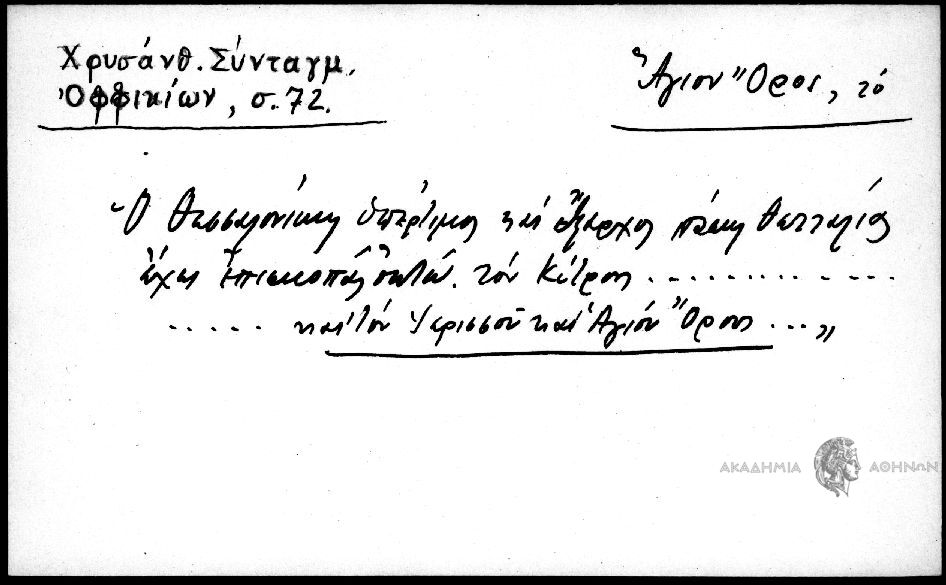 Χρυσάνθ. Σύνταγμ.
Ὀφφικίων, σ. 72.
Ἅγιον Ὄρος, τό
"Ὁ Θεσσαλονίκης ὑπέρτιμος καὶ ἔξαρχος πάσης Θετταλίας
ἔχει ἐπισκοπὰς ὀκτώ. τὸν Κίτρους . . . . . . . . . . . .
. . . . . . καὶ τὸν Ἱερισσοῦ καὶ Ἁγίου Ὄρους ... "
ΑΚΑΔΗΜΙΑ ΑΘΗΝΩΝ